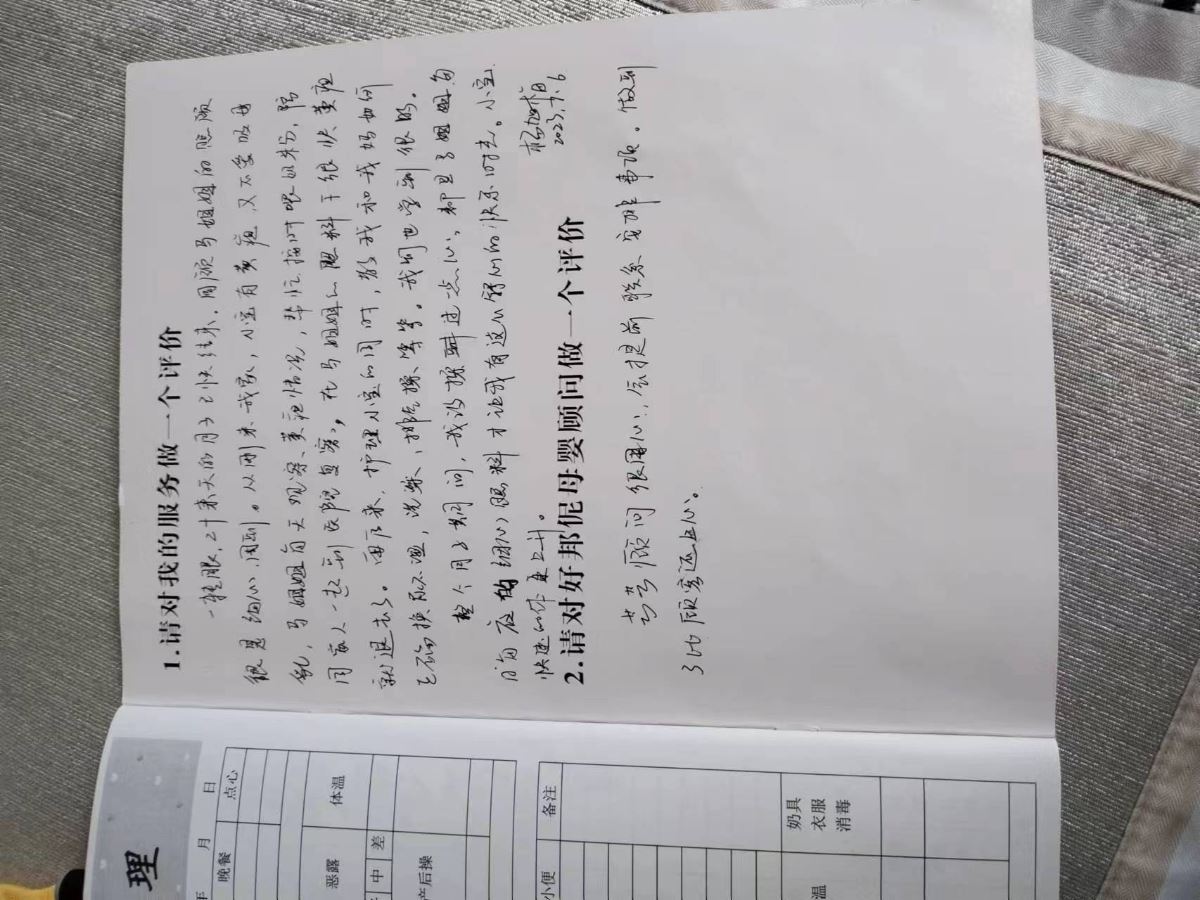 1.请对我的服务做一个评价
一转眼,二十来天的月子已快结束,回顾马姐姐的照顾
很是细心、周到。从刚来我家,小宝有黄疸,又不会吸母
乳,马姐姐每天观察黄疸情况,帮忙按时喂奶粉,陪
同家人一起到医院复察,在马姐姐的照料下很快黄疸
就退去了。再后来,护理小宝的同时,教我和我妈如何
正确换尿不湿,洗澡、排气操、等等。我们也学到很多。
整个月子期间,我没操过一点心,都是马姐姐
的细心照料才让我有这么舒心的快乐时光。小宝
快速的体重上升。
2023.7.6
2.请对好邦伲母婴顾问做一个评价
芸芸顾问很用心,会提前联系安排事项。做到
了比顾客还上心。
理
年 月 日
晚餐 点心
恶露 体温
中 差
产后操
小便 备注
温 奶具
衣服
消毒